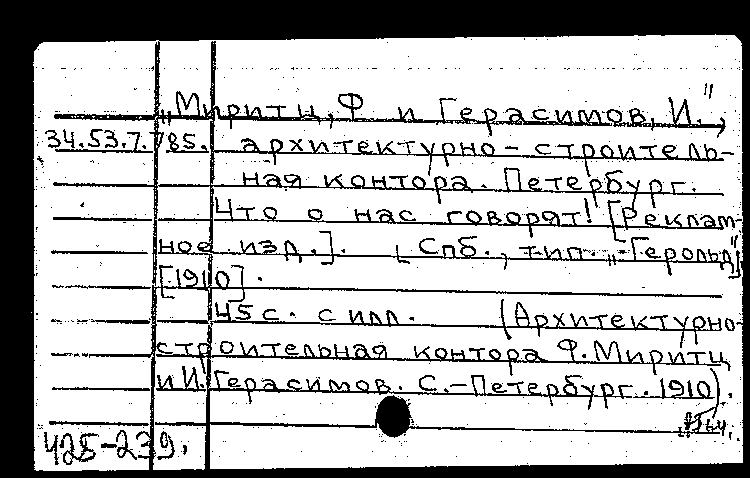 „Миритц, Ф и Герасимов, И.",
34.53.7.785. архитектурно-строитель-
ная контора. Петербург.
Что о нас говорят! [Реклам-
ное изд.]. [Спб., тип „Герольд"]
[1910].
45 с. с илл. (Архитектурно-
строительная контора Ф. Миритц
и И. Герасимов. С.-Петербург. 1910).
425-239.